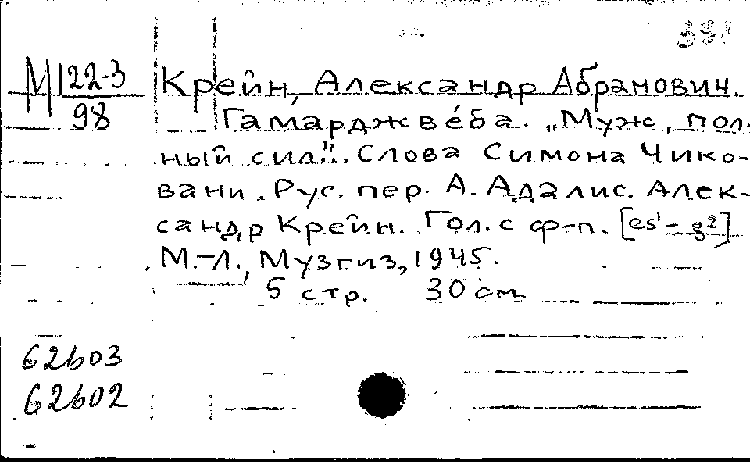 М 22-3
98
Крейн, Александр Абрамович.
Гамарджвéба. „Муж, пол-
ный сил". Слова Симона Чико-
вани. Рус. пер. А. Адалис. Алек-
сандр Крейн. Гол. с ф-п. [es¹-g²]
М.-Л., Музгиз, 1945.
5 стр. 30 см
62603
62602